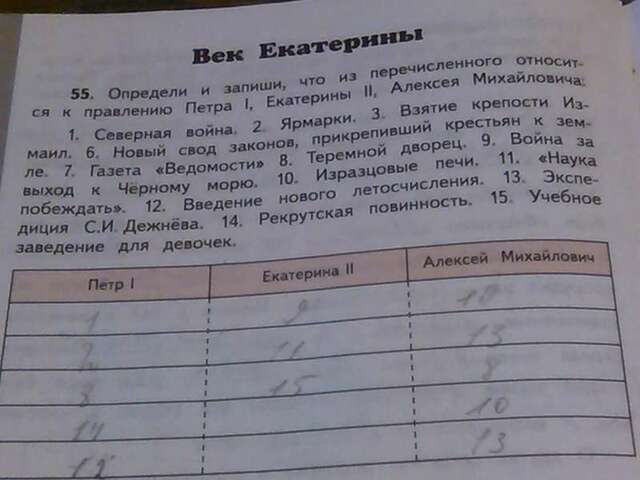 Век Екатерины
55. Определи и запиши, что из перечисленного относит-
ся к правлению Петра I, Екатерины II, Алексея Михайловича:
1. Северная война. 2. Ярмарки. 3. Взятие крепости Из-
маил. 6. Новый свод законов, прикрепивший крестьян к зем-
ле. 7. Газета «Ведомости» 8. Теремной дворец. 9. Война за
выход к Чёрному морю. 10. Изразцовые печи. 11. «Наука
побеждать». 12. Введение нового летосчисления. 13. Экспе-
диция С.И. Дежнёва. 14. Рекрутская повинность. 15. Учебное
заведение для девочек.
Пётр I Екатерина II Алексей Михайлович
1 9
11 13
15 8
14 10
12 13